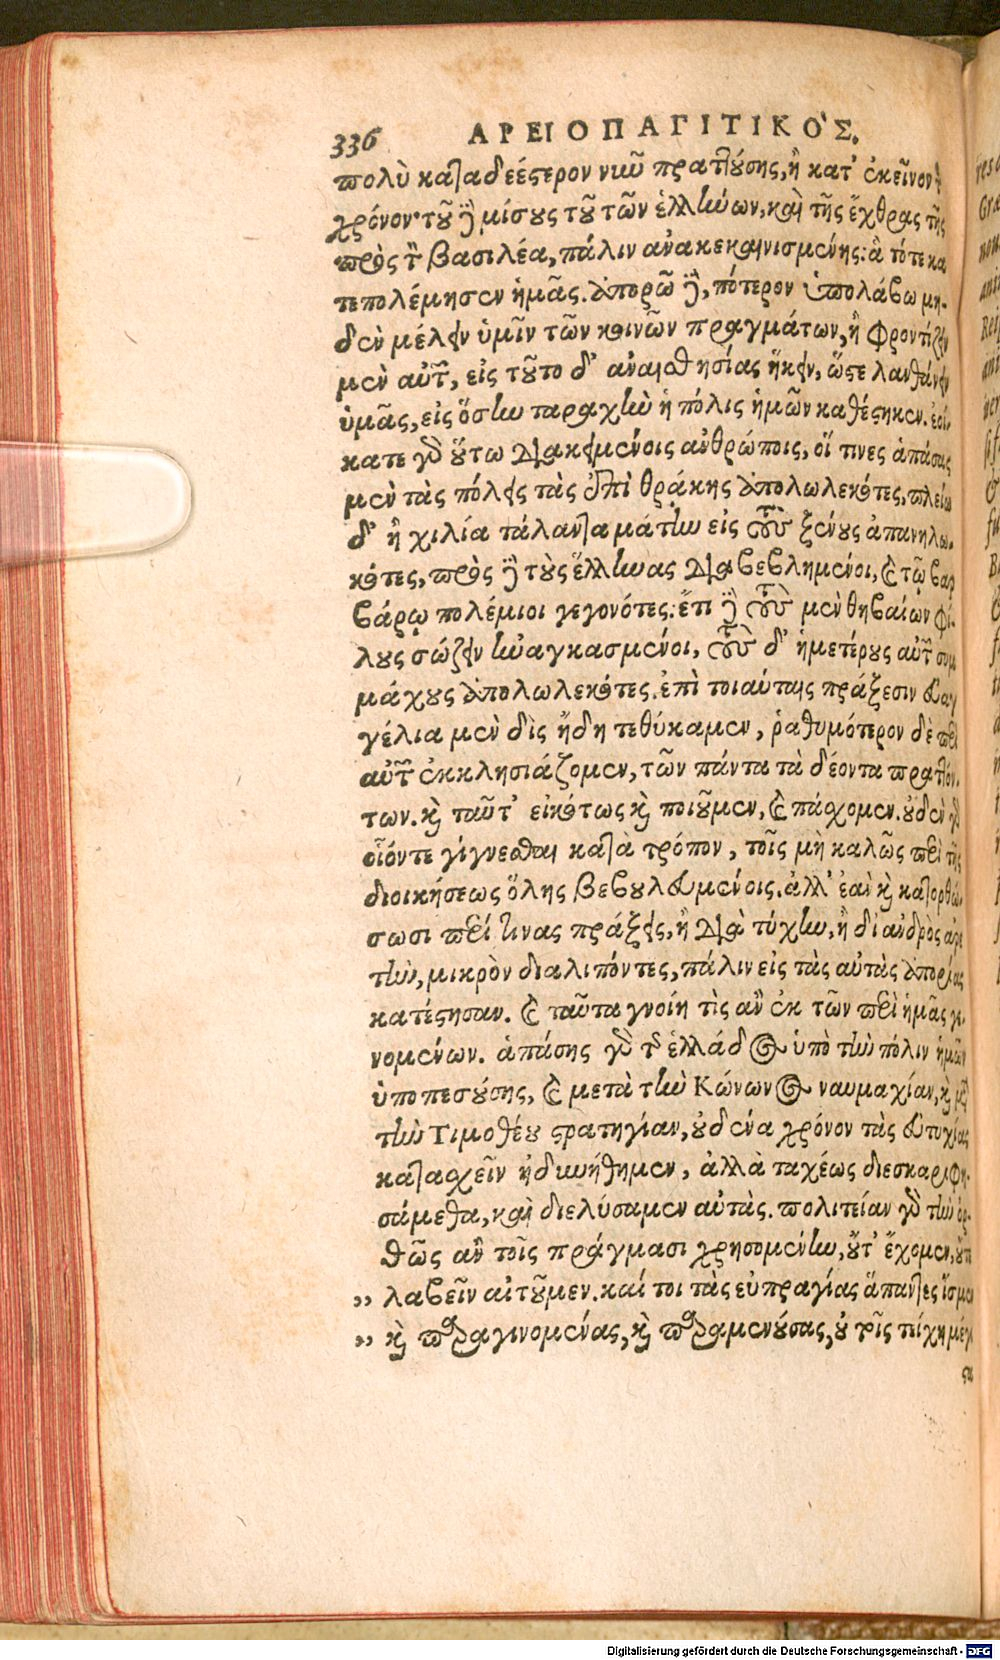 336 ΑΡΕΙΟΠΑΓΙΤΙΚΟΣ.
πολὺ καταδεέστερον νῦν πραττούσης, ἢ κατ' ἐκεῖνον τὸν
χρόνον· τοῦ δὲ μίσους τοῦ τῶν ἑλλήνων, καὶ τῆς ἔχθρας τῆς
πρὸς τὸν βασιλέα, πάλιν ἀνακεκαινισμένης: ἃ τότε κα
τεπολέμησεν ἡμᾶς. ἀπορῶ δὲ, πότερον ὑπολάβω μη-
δὲν μέλειν ὑμῖν τῶν κοινῶν πραγμάτων, ἢ φροντίζειν
μὲν αὐτῶν, εἰς τοῦτο δ' ἀναισθησίας ἥκειν, ὥστε λανθάνειν
ὑμᾶς, εἰς ὅσην ταραχὴν ἡ πόλις ἡμῶν καθέστηκεν. ἐοί-
κατε γὰρ οὕτω διακειμένοις ἀνθρώποις, οἵ τινες ἁπάσας
μὲν τὰς πόλεις τὰς ἐπὶ θράκης ἀπολωλεκότες, πλείω
δ' ἢ χιλία τάλαντα μάτην εἰς τοὺς ξένους ἀπανηλω-
κότες, πρὸς δὲ τοὺς ἕλληνας διαβεβλημένοι, καὶ τῷ βαρ
βάρῳ πολέμιοι γεγονότες: ἔτι δὲ τοὺς μὲν θηβαίων φί-
λους σώζειν ἠναγκασμένοι, τοὺς δ' ἡμετέρους αὐτῶν συμ
μάχους ἀπολωλεκότες. ἐπὶ τοιαύταις πράξεσιν εὐαγ
γέλια μὲν δὶς ἤδη τεθύκαμεν, ῥαθυμότερον δὲ περὶ
αὐτῶν ἐκκλησιάζομεν, τῶν πάντα τὰ δέοντα πραττόν-
των. καὶ ταῦτ' εἰκότως καὶ ποιοῦμεν, καὶ πάσχομεν. οὐδὲν γὰρ
οἷόντε γίγνεσθαι κατὰ τρόπον, τοῖς μὴ καλῶς περὶ τῆς
διοικήσεως ὅλης βεβουλευμένοις. ἀλλ' ἐὰν καὶ κατορθώ-
σωσι περί τινας πράξεις, ἢ διὰ τύχην, ἢ δι' ἀνδρὸς ἀρε
τὴν, μικρὸν διαλιπόντες, πάλιν εἰς τὰς αὐτὰς ἀπορίας
κατέστησαν. καὶ ταῦτα γνοίη τὶς ἂν ἐκ τῶν περὶ ἡμᾶς γε-
νομένων. ἁπάσης γὰρ τῆς ἑλλάδος ὑπὸ τὴν πόλιν ἡμῶν
ὑποπεσούσης, καὶ μετὰ τὴν Κόνωνος ναυμαχίαν, καὶ μετὰ
τὴν Τιμοθέου στρατηγίαν, οὐδένα χρόνον τὰς εὐτυχίας
κατασχεῖν ἠδυνήθημεν, ἀλλὰ ταχέως διεσκαριφη-
σάμεθα, καὶ διελύσαμεν αὐτὰς. πολιτείαν γὰρ τὴν ὀρ-
θῶς ἂν τοῖς πράγμασι χρησομένην, οὔτ' ἔχομεν, οὔτε
„ λαβεῖν αἰτοῦμεν. καί τοι τὰς εὐπραγίας ἅπαντες ἴσμεν
„ καὶ παραγινομένας, καὶ παραμενούσας, οὐ τοῖς τείχη μέγι
στα
Digitalisierung gefördert durch die Deutsche Forschungsgemeinschaft - DFG